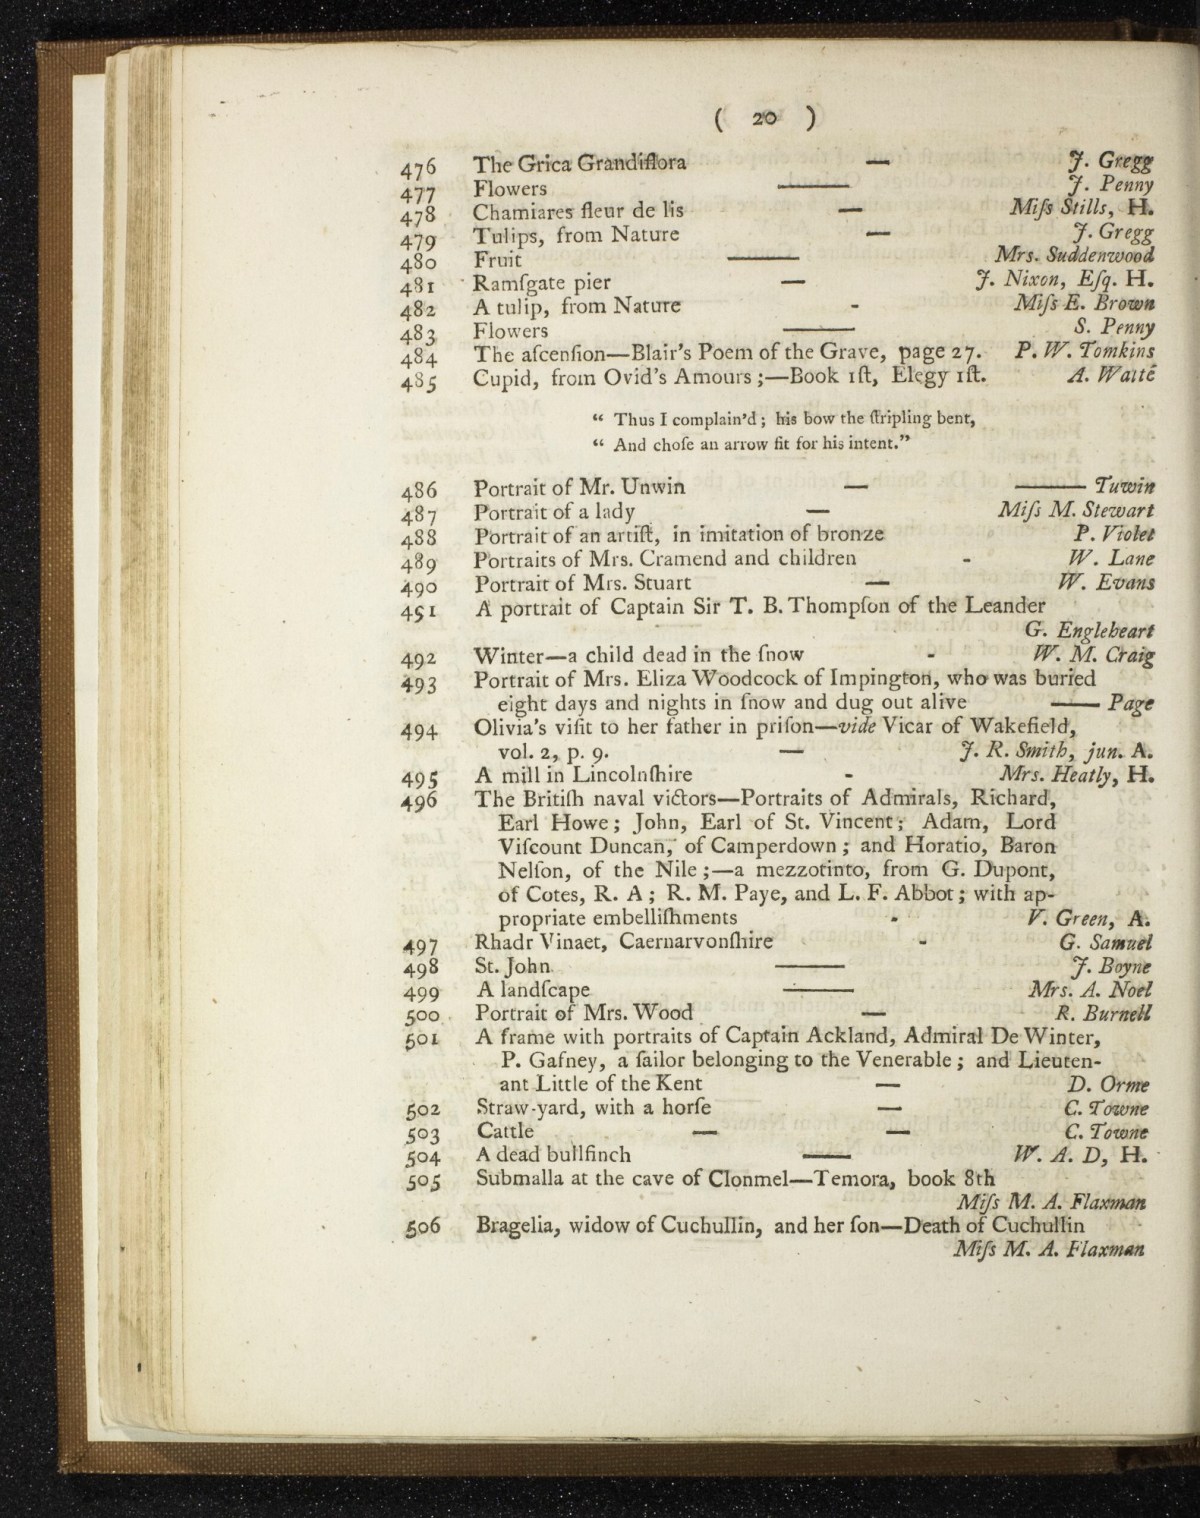 ( 20 )
476 The Grica Grandiflora — J. Gregg
477 Flowers —— J. Penny
478 Chamiares fleur de lis — Miſs Stills, H.
479 Tulips, from Nature — J. Gregg
480 Fruit —— Mrs. Suddenwood
481 Ramſgate pier — J. Nixon, Eſq. H.
482 A tulip, from Nature - Miſs E. Brown
483 Flowers —— S. Penny
484 The aſcenſion—Blair's Poem of the Grave, page 27. P. W. Tomkins
485 Cupid, from Ovid's Amours;—Book 1ſt, Elegy 1ſt. A. Watté
“ Thus I complain'd; his bow the ſtripling bent,
“ And choſe an arrow fit for his intent.”
486 Portrait of Mr. Unwin — —— Tuwin
487 Portrait of a lady — Miſs M. Stewart
488 Portrait of an artiſt, in imitation of bronze P. Violet
489 Portraits of Mrs. Cramend and children - W. Lane
490 Portrait of Mrs. Stuart — W. Evans
491 A portrait of Captain Sir T. B. Thompſon of the Leander
G. Engleheart
492 Winter—a child dead in the ſnow - W. M. Craig
493 Portrait of Mrs. Eliza Woodcock of Impington, who was buried
eight days and nights in ſnow and dug out alive —— Page
494 Olivia's viſit to her father in priſon—vide Vicar of Wakefield,
vol. 2, p. 9. — J. R. Smith, jun. A.
495 A mill in Lincolnſhire - Mrs. Heatly, H.
496 The Britiſh naval victors—Portraits of Admirals, Richard,
Earl Howe; John, Earl of St. Vincent; Adam, Lord
Viſcount Duncan, of Camperdown; and Horatio, Baron
Nelſon, of the Nile;—a mezzotinto, from G. Dupont,
of Cotes, R. A; R. M. Paye, and L. F. Abbot; with ap-
propriate embelliſhments - V. Green, A.
497 Rhadr Vinaet, Caernarvonſhire - G. Samuel
498 St. John —— J. Boyne
499 A landſcape —— Mrs. A. Noel
500 Portrait of Mrs. Wood — R. Burnell
501 A frame with portraits of Captain Ackland, Admiral De Winter,
P. Gafney, a ſailor belonging to the Venerable; and Lieuten-
ant Little of the Kent — D. Orme
502 Straw-yard, with a horſe — C. Towne
503 Cattle — — C. Towne
504 A dead bullfinch —— W. A. D, H.
505 Submalla at the cave of Clonmel—Temora, book 8th
Miſs M. A. Flaxman
506 Bragelia, widow of Cuchullin, and her ſon—Death of Cuchullin
Miſs M. A. Flaxman